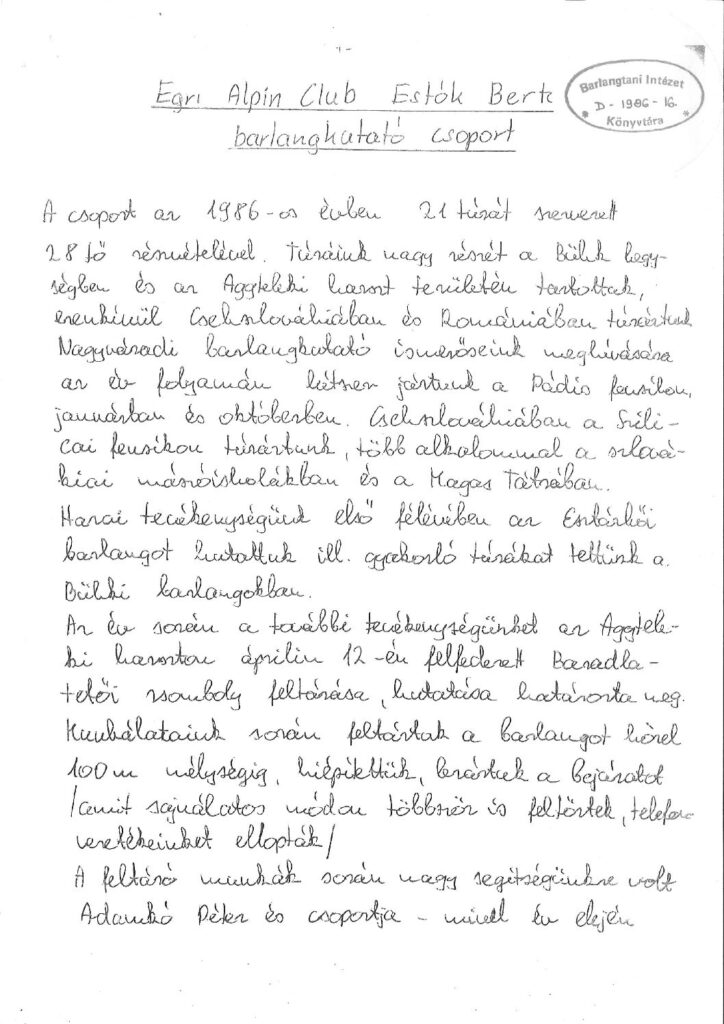 - 1 -
Egri Alpin Club Estók Berta
barlangkutató csoport
Barlangtani Intézet
D - 1986 - 16.
Könyvtára
A csoport az 1986-os évben 21 túrát szervezett
28 fő részvételével. Túráink nagy részét a Bükk hegy-
ségben és az Aggteleki karszt területén tartottuk,
ezenkívül Csehszlovákiában és Romániában túráztunk
Nagyváradi barlangkutató ismerőseink meghívására
az év folyamán kétszer jártunk a Pádis fensíkon,
januárban és októberben. Csehszlovákiában a Szili-
cai fensíkon túráztunk, több alkalommal a szlová-
kiai mászóiskolákban és a Magas Tátrában.
Hazai tevékenységünk első félévében az Esztáskői
barlangot kutattuk ill. gyakorló túrákat tettünk a
Bükki barlangokban.
Az év során a további tevékenységünket az Aggtele-
ki karszton április 12-én felfedezett Baradla-
tetői zsomboly feltárása, kutatása határozta meg.
Munkálataink során feltártuk a barlangot közel
100 m mélységig, kiépítettük, lezártuk a bejáratot
/amit sajnálatos módon többször is feltörtek, telefon
vezetékeinket ellopták/
A feltáró munkák során nagy segítségünkre volt
Adamkó Péter és csoportja - mivel év elején